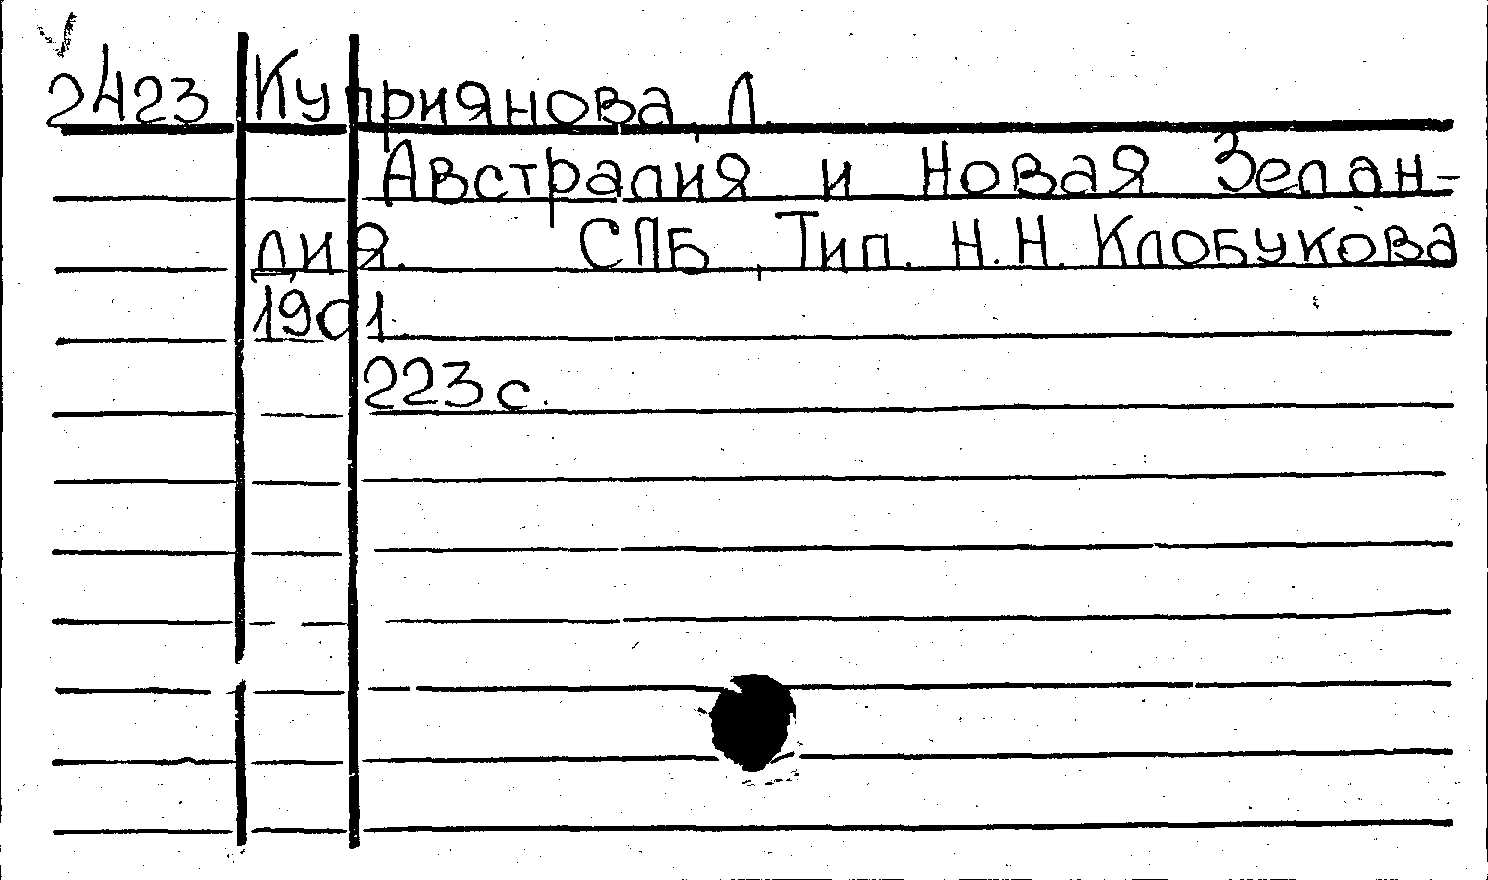 2423 Куприянова, Л.
Австралия и Новая Зелан-
дия. СПБ, Тип. Н.Н. Клобукова
1901.
223 с.